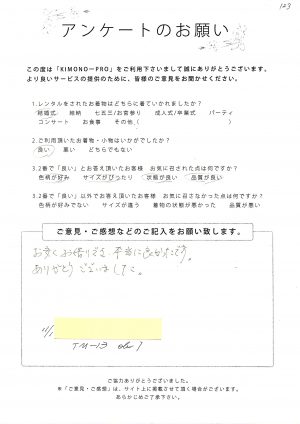 123
アンケートのお願い
この度は「KIMONO－PRO」をご利用下さいまして誠にありがとうございます。
より良いサービスの提供のために、皆様のご意見をお聞かせください。
1.レンタルをされたお着物はどちらに着ていかれましたか？
結婚式 結納 七五三/お宮参り 成人式/卒業式 パーティ
コンサート お食事 その他( )
2.ご利用頂いたお着物・小物はいかがでしたか？
良い 悪い どちらでもない
3.2番で「良い」とお答え頂いたお客様 お気に召された点は何ですか？
色柄が好み サイズがぴったり 状態が良い 品質が良い
3.2番で「良い」以外でお答え頂いたお客様 お気に召さなかった点は何ですか？
色柄が好みでない サイズが違う 着物の状態が悪かった 品質が悪い
ご意見・ご感想などのご記入をお願い致します。
お安くお借りでき、本当に良かったです。
ありがとうございました。
TM-13
ご協力ありがとうございました。
※「ご意見・ご感想」は、サイト上に掲載させて頂く場合がございます。
あらかじめご了承下さい。